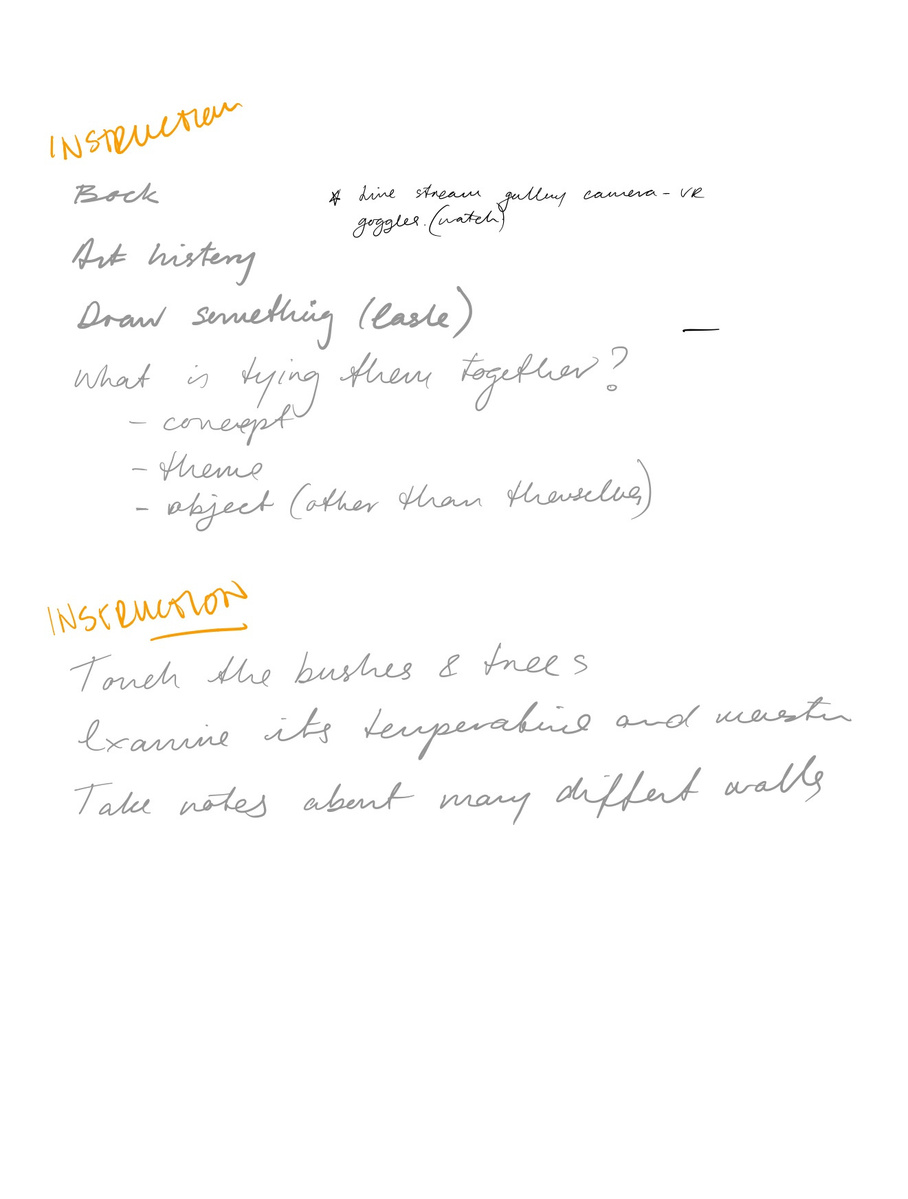 INSTRUCTION
Bock
* Live stream gallery camera - VR
goggles. (watch)
Art history
Draw something (lasle)
What is tying them together?
- concept
- theme
- object (other than themselves)
INSTRUCTION
Touch the bushes & trees
Examine its temperature and
Take notes about many diffent walls